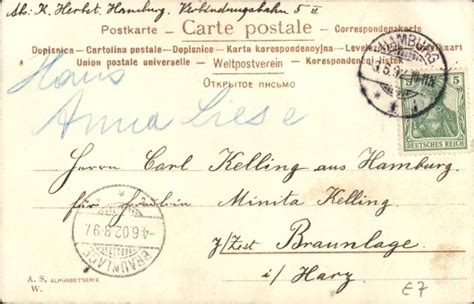 Ab. K. Herbst, Hamburg, Verbindungsbahn 5 II
Postkarte - Carte postale - Correspondenzkarte
Dopisnica - Cartolina postale - Dopisnice - Karta korespondencyjna - Levelező
Union postale universelle - Weltpostverein - Korespondenční lístek
Открытое письмо
Hans
Anna Liese
HAMBURG
5
DEUTSCHES REICH
Herrn Carl Kelling aus Hamburg
für Fräulein Minita Kelling
z/Zeit Braunlage
i/Harz
BRAUNLAGE
4.6.02.8-9V.
A. S. ALPHABETSERIE
W.
E7